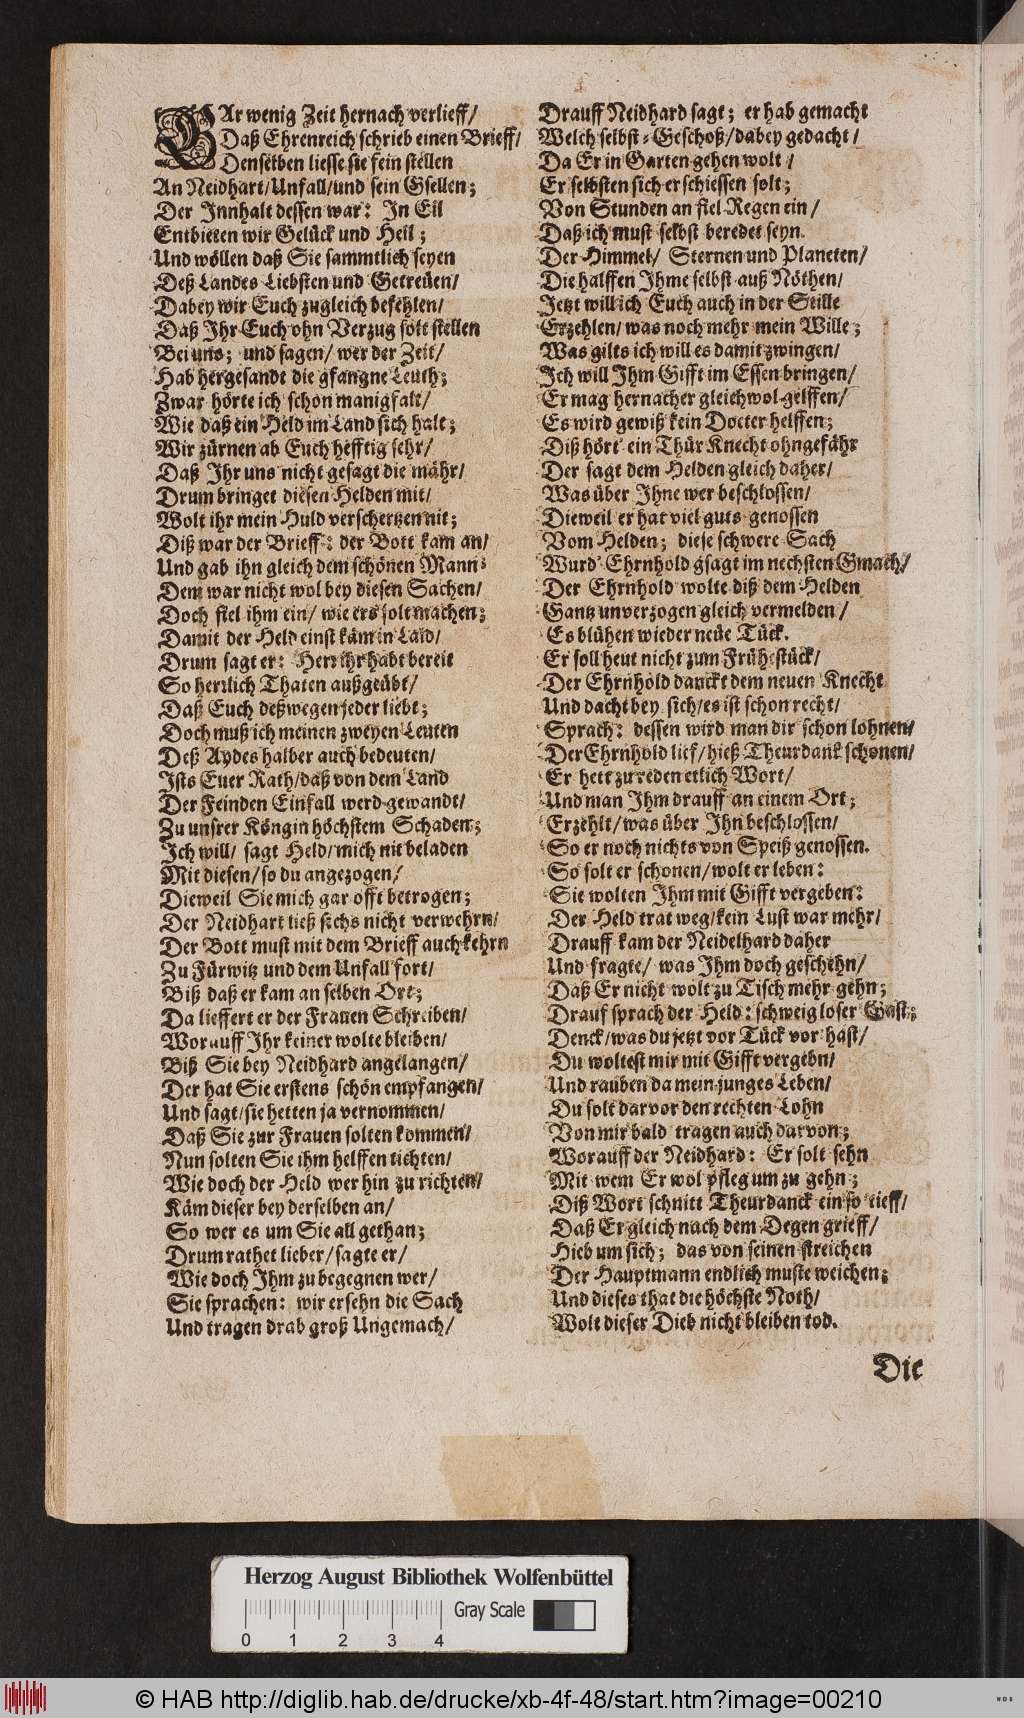 GAr wenig Zeit hernach verlieff/
Daß Ehrenreich schrieb einen Brieff/
Denselben liesse sie fein stellen
An Neidhart/Unfall/und sein Gsellen;
Der Innhalt dessen war: In Eil
Entbieten wir Gelück und Heil;
Und wöllen daß Sie sammtlich seyen
Deß Landes Liebsten und Getreüen/
Dabey wir Euch zugleich befehlen/
Daß Ihr Euch ohn Verzug solt stellen
Bei uns; und sagen/ wer der Zeit/
Hab hergesandt die gfangne Leuth;
Zwar hörte ich schon manigfalt/
Wie daß ein Held im Land sich halt;
Wir zürnen ab Euch hefftig sehr/
Daß Ihr uns nicht gesagt die mähr/
Drum bringet diesen Helden mit/
Wolt ihr mein Huld verschertzen nit;
Diß war der Brieff: der Bott kam an/
Und gab ihn gleich dem schönen Mann:
Dem war nicht wol bey diesen Sachen/
Doch fiel ihm ein/ wie ers solt machen;
Damit der Held einst käm in Laid/
Drum sagt er: Herr ihr habt bereit
So herrlich Thaten außgeübt/
Daß Euch deßwegen jeder liebt;
Doch muß ich meinen zweyen Leuten
Deß Aydes halber auch bedeuten/
Ists Euer Rath/daß von dem Land
Der Feinden Einfall werd gewandt/
Zu unsrer Köngin höchstem Schaden;
Ich will/ sagt Held/mich nit beladen
Mit diesen/so du angezogen/
Dieweil Sie mich gar offt betrogen;
Der Neidhart ließ sichs nicht verwehrn/
Der Bott must mit dem Brieff auch kehrn
Zu Fürwitz und dem Unfall fort/
Biß daß er kam an selben Ort;
Da lieffert er der Frauen Schreiben/
Worauff Ihr keiner wolte bleiben/
Biß Sie bey Neidhard angelangen/
Der hat Sie erstens schön empfangen/
Und sagt/sie hetten ja vernommen/
Daß Sie zur Frauen solten kommen/
Nun solten Sie ihm helffen tichten/
Wie doch der Held wer hin zu richten/
Käm dieser bey derselben an/
So wer es um Sie all gethan;
Drum rathet lieber/sagte er/
Wie doch Ihm zu begegnen wer/
Sie sprachen: wir ersehn die Sach
Und tragen drab groß Ungemach/
Drauff Neidhard sagt; er hab gemacht
Welch selbst-Geschoß/dabey gedacht/
Da Er in Garten gehen wolt/
Er selbsten sich erschiessen solt;
Von Stunden an fiel Regen ein/
Daß ich must selbst beredet seyn.
Der Himmel/ Sternen und Planeten/
Die halffen Ihme selbst auß Nöthen/
Jetzt will ich Euch auch in der Stille
Erzehlen/was noch mehr mein Wille;
Was gilts ich will es damit zwingen/
Ich will Ihm Gifft im Essen bringen/
Er mag hernacher gleichwol gelffen/
Es wird gewiß kein Docter helffen;
Diß hört ein Thür Knecht ohngefähr
Der sagt dem Helden gleich daher/
Was über Ihne wer beschlossen/
Dieweil er hat viel guts genossen
Vom Helden; diese schwere Sach
Wurd Ehrnhold gsagt im nechsten Gmach/
Der Ehrnhold wolte diß dem Helden
Gantz unverzogen gleich vermelden/
Es blühen wieder neüe Tück.
Er soll heut nicht zum Frühestück/
Der Ehrnhold danckt dem neuen Knecht
Und dacht bey sich/es ist schon recht/
Sprach: dessen wird man dir schon lohnen/
Der Ehrnhold lief/hieß Theurdank schonen/
Er hett zu reden etlich Wort/
Und man Ihm drauff an einem Ort;
Erzehlt/was über Ihn beschlossen/
So er noch nichts von Speiß genossen.
So solt er schonen/wolt er leben:
Sie wolten Ihm mit Gifft vergeben:
Der Held trat weg/kein Lust war mehr/
Drauff kam der Neidelhard daher
Und fragte/ was Ihm doch geschehn/
Daß Er nicht wolt zu Tisch mehr gehn;
Drauf sprach der Held: schweig loser Gast;
Denck/was du jetzt vor Tück vor hast/
Du woltest mir mit Gifft vergebn/
Und rauben da mein junges Leben/
Du solt darvor den rechten Lohn
Von mir bald tragen auch darvon;
Worauff der Neidhard: Er solt sehn
Mit wem Er wol pfleg um zu gehn;
Diß Wort schnitt Theurdanck ein so tieff/
Daß Er gleich nach dem Degen grieff/
Hieb um sich; das von seinen streichen
Der Hauptmann endlich muste weichen;
Und dieses that die höchste Noth/
Wolt dieser Dieb nicht bleiben tod.
Die
Herzog August Bibliothek Wolfenbüttel
Gray Scale
0 1 2 3 4
© HAB http://diglib.hab.de/drucke/xb-4f-48/start.htm?image=00210